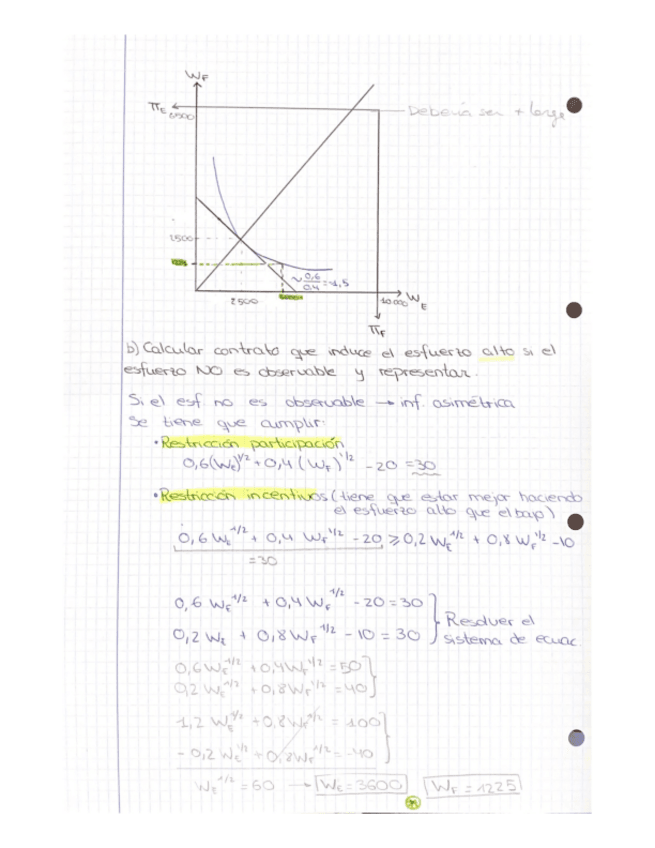 W_F
π_E
6500
Debería ser + largo
2500
1225
~ 0,6/0,4 = 1,5
2500
10000
W_E
π_F
b) Calcular contrato que induce el esfuerzo alto si el
esfuerzo NO es observable y representar.
Si el esf. no es observable → inf. asimétrica
Se tiene que cumplir:
• Restricción participación
0,6(W_E)^1/2 + 0,4(W_F)^1/2 - 20 = 30
• Restricción incentivos (tiene que estar mejor haciendo
el esfuerzo alto que el bajo)
0,6 W_E^1/2 + 0,4 W_F^1/2 - 20 ≥ 0,2 W_E^1/2 + 0,8 W_F^1/2 - 10
= 30
0,6 W_F^1/2 + 0,4 W_F^1/2 - 20 = 30
0,2 W_E + 0,8 W_F^1/2 - 10 = 30
Resolver el
sistema de ecuac.
0,6 W_E^1/2 + 0,4 W_F^1/2 = 50
0,2 W_E^1/2 + 0,8 W_F^1/2 = 40
1,2 W_E^1/2 + 0,8 W_F^1/2 = 100
- 0,2 W_E^1/2 + 0,8 W_F^1/2 = -40
W_E^1/2 = 60 → W_E = 3600 W_F = 1225